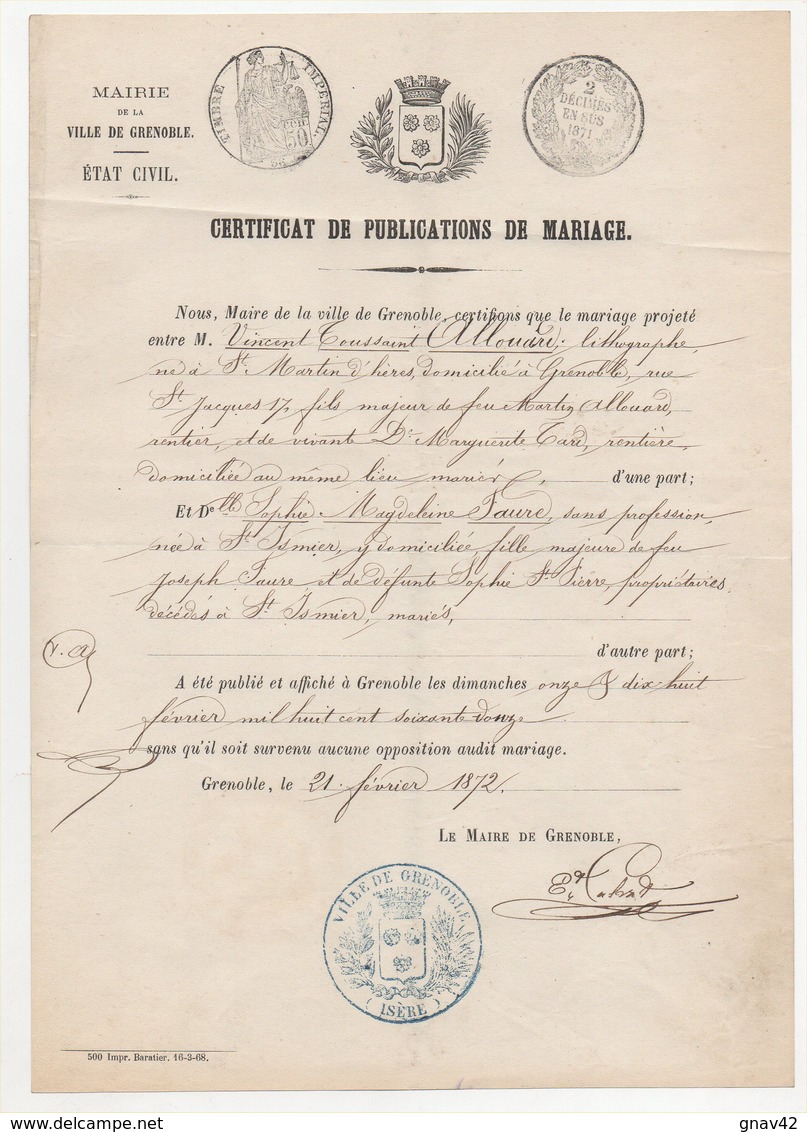 MAIRIE
DE LA
VILLE DE GRENOBLE.
ÉTAT CIVIL.
TIMBRE IMPÉRIAL.
50
2
DÉCIMES
EN SUS
1871
CERTIFICAT DE PUBLICATIONS DE MARIAGE.
Nous, Maire de la ville de Grenoble, certifions que le mariage projeté
entre M. Vincent Toussaint Allouard, lithographe,
né à St. Martin d'hères, domicilié à Grenoble, rue
St. Jacques 17, fils majeur de feu Martin Allouard,
rentier, et de vivante De. Marguerite Tard, rentière,
domiciliée au même lieu mariés, d'une part;
Et Delle Sophie Magdeleine Faure, sans profession,
née à St. Ismier, y domiciliée fille majeure de feu
Joseph Faure et de défunte Sophie St. Pierre, propriétaires
décédés à St. Ismier, mariés,
d'autre part;
A été publié et affiché à Grenoble les dimanches onze & dix-huit
février mil huit cent soixante douze
sans qu'il soit survenu aucune opposition audit mariage.
Grenoble, le 21 février 1872.
LE MAIRE DE GRENOBLE,
VILLE DE GRENOBLE
(ISÈRE)
500 Impr. Baratier. 16-3-68.
gnav42